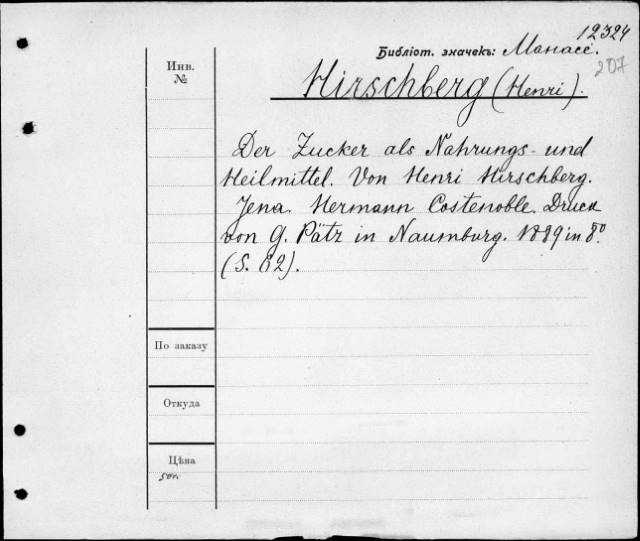 12324
Библіот. значекъ: Манасе.
207
Инв.
№
Hirschberg (Henri).
Der Zucker als Nahrungs- und
Heilmittel. Von Henri Hirschberg.
Jena. Hermann Costenoble. Druck
von G. Pätz in Naumburg. 1889 in 8°.
(S. 62).
По заказу
Откуда
Цѣна